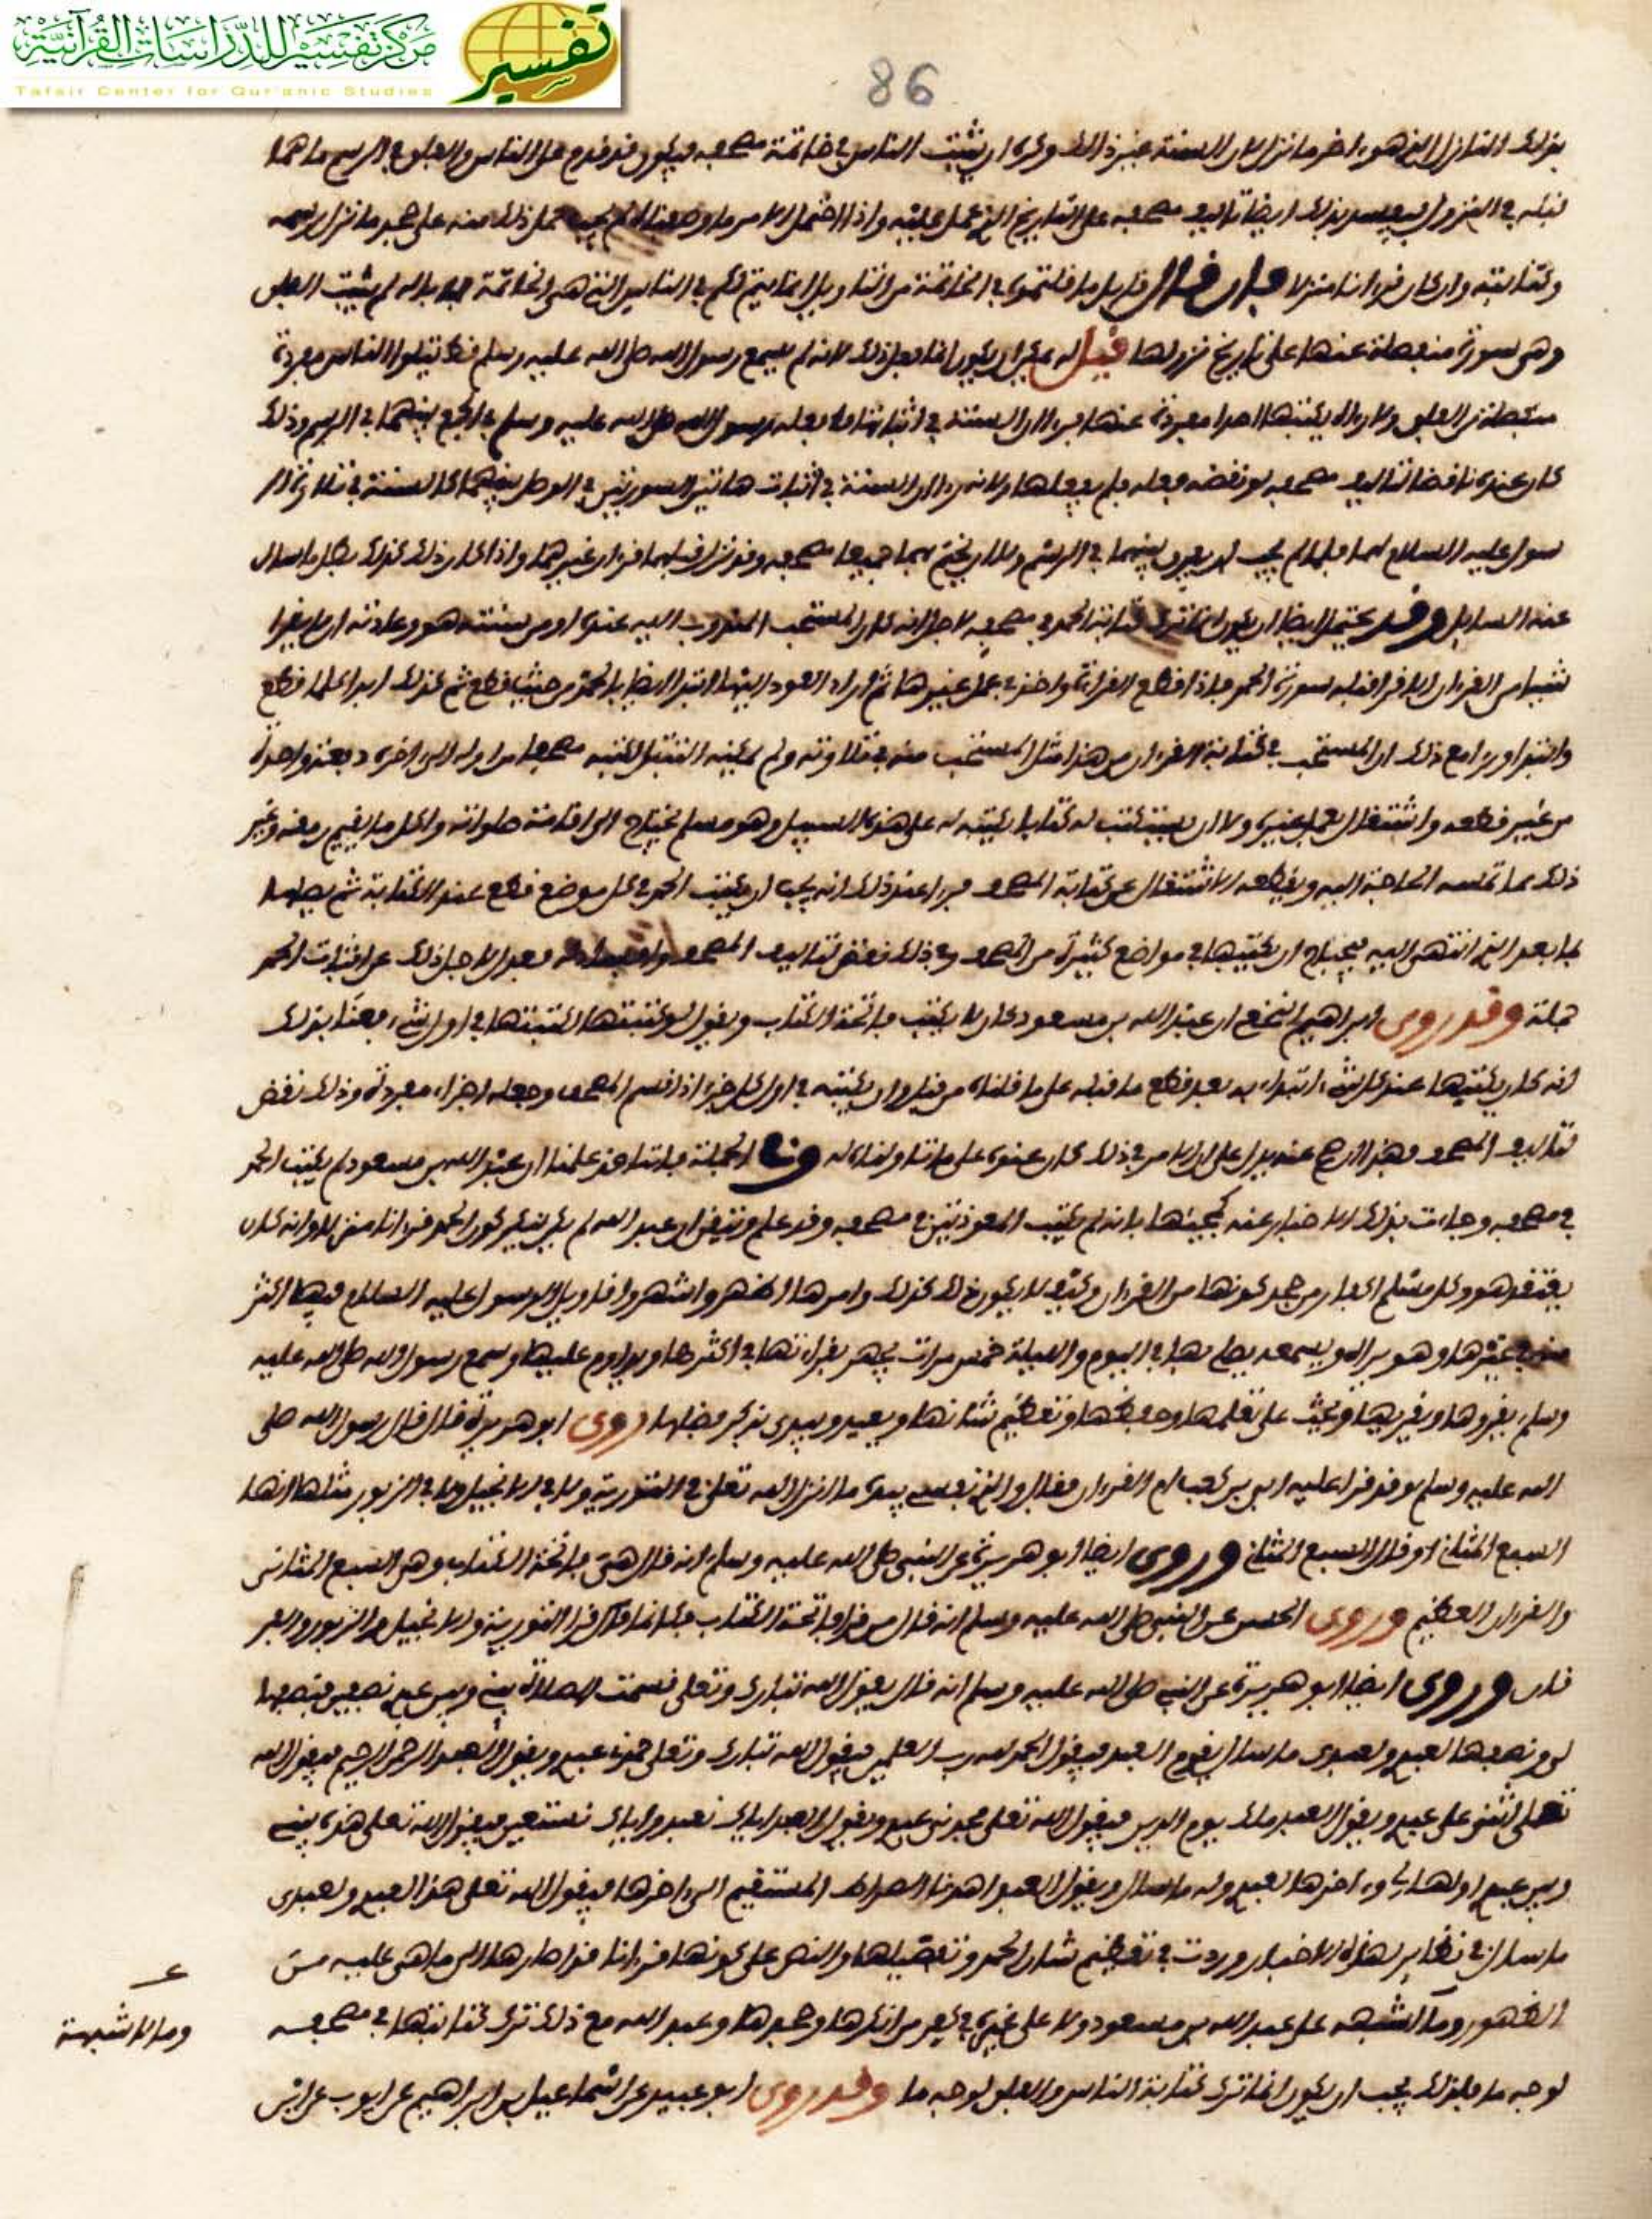 مركز تفسير للدراسات القرآنية
Tafsir Center for Qur'anic Studies
تفسير
86
بذلك النازل الذي هو اخر ما نزل لان السنة عنده ذلك وكره ان يثبت الناس في خاتمة مصحفه فيكون قد قدم على الناس والفلق في الرسم ما هما
قبله في النزول فيفسد بذلك ايضا تاليف مصحفه على التاريخ الذي عمل عليه واذا احتمل الامر ما وصفناه لم يجب حمل ذلك منه على جحد ما نزل رسمه
وكتابته وان كان قرءانا منزلا فان قال قايل ما قلتموه في الخاتمة من التاويل انما يتم لكم في الناس التي هي الخاتمة فما باله لم يثبت الفلق
وهي سورة منفصلة عنها على تاريخ نزولها قيل له يمكن ان يكون انما فعل ذلك لانه لم يسمع رسول الله صلى الله عليه وسلم قط يتلوا الناس مفردة
منفصلة من الفلق ولا راه يكتبها احدا مفردة عنها فيرا ان السنة في اثباتها ما فعله رسول الله صلى الله عليه وسلم في الجمع بينهما في الرسم وذلك
كان عنده ناقضا لتاليف مصحفه لو نقضه وفعله فلم يفعلها ولانه راى ان السنة في اثبات هاتين السورتين في الوصل بينهما كالسنة في تلاوة الر
سول عليه السلام لهما فلما لم يجب ان يفرق بينهما في الرسم ولا ان يختم بهما جميعا مصحفه وقد نزل قبلهما قرءان غيرهما واذا كان ذلك كذلك بطل ما سال
عنه السايل وقد يحتمل ايضا ان يكون انما ترك كتابة الحمد في مصحفه لاجل انه كان المستحب المندوب اليه عنده او من سنته هو وعادته ان لا يقرا
شيئا من القرءان الا قرا قبله سورة الحمد فاذا قطع القراءة واخذ في عمل غيرها ثم اراد العود اليها ابتدا ايضا بالحمد من حيث قطع ثم كذلك ابدا كلما قطع
وابتدا وراى مع ذلك ان المستحب في كتابة القرءان من هذا مثل المستحب منه في تلاوته ولم يمكنه التشاغل بكتبه مصحفا من اوله الى اخره دفعة واحدة
من غير قطعه واشتغال بعمل غيره ولا ان يستكتب له كتابا يكتبه له على هذه السبيل وهو مسلم يحتاج الى اقامة صلواته واكل ما يقيم رمقه وغير
ذلك مما تمسه الحاجة اليه ويقطعه الاشتغال عن كتابة المصحف فيرا عند ذلك انه يجب ان يكتب الحمد في كل موضع قطع عنده الكتابة ثم يصلها
بما بعد الذي انتهى اليه فيحتاج ان يكتبها في مواضع كثيرة من المصحف وفي ذلك نقض لتاليف المصحف وافساد له فعدل لاجل ذلك عن اثبات الحمد
جملة وقد روى ابراهيم النخعي ان عبد الله بن مسعود كان لا يكتب فاتحة الكتاب ويقول لو كتبتها لكتبتها في اول كل شيء، فعنا بذلك
انه كان يكتبها عند كل شيء، ابتداء به بعد قطع ما قبله على ما قلناه من قبل وان يكتبه في اول كل جزء اذا قسم المصحف وجعله اجزاء مفردة وذلك نقض
لتاليف المصحف وهذا ان صح عنه يدل على ان الامر في ذلك كان عنده على ما تاولناه له وفي الجملة فاننا قد علمنا ان عبد الله بن مسعود لم يكتب الحمد
في مصحفه وجاءت بذلك الاخبار عنه كمجيئها بانه لم يكتب المعوذتين في مصحفه وقد علم وتيقن ان عبد الله لم يكن ينكر كون الحمد قرءانا منزلا وانه كان
يعتقد هو وكل مسلم اكفار من جحد كونها من القرءان وكيف لا يكون ذلك كذلك وامرها اظهر واشهر واقاويل الرسول عليه السلام فيها اكثر
منه في غيرها وهو يراه ويسمعه يصلي بها في اليوم والليلة خمس مرات يجهر بقراءتها في اكثرها ويداوم عليها وسمع رسول الله صلى الله عليه
وسلم يقروها ويقريها ويحث على تعلمها وحفظها وتعظيم شانها ويعيد ويبدي بذكر فضلها روى ابو هريرة قال قال رسول الله صلى
الله عليه وسلم وقد قرا عليه ابي بن كعب ام القرءان فقال والذي نفسي بيده ما انزل الله تعلى في التورية ولا في الانجيل ولا في الزبور مثلها انها
السبع المثاني او قال السبع المثاني وروى ايضا ابو هريرة عن النبي صلى الله عليه وسلم انه قال هي فاتحة الكتاب وهي السبع المثاني
والقرءان العظيم وروى الحسن عن النبي صلى الله عليه وسلم انه قال من قرا فاتحة الكتاب فكانما قرا التورية والانجيل والزبور والفر
قان وروى ايضا ابو هريرة عن النبي صلى الله عليه وسلم انه قال يقول الله تبارك وتعلى قسمت الصلاة بيني وبين عبدي نصفين فنصفها
لي ونصفها لعبدي ولعبدي ما سال يقوم العبد فيقول الحمد لله رب العلمين فيقول الله تبارك وتعلى حمدني عبدي ويقول العبد الرحمن الرحيم فيقول الله
تعلى اثنى علي عبدي ويقول العبد ملك يوم الدين فيقول الله تعلى مجدني عبدي ويقول العبد اياك نعبد واياك نستعين فيقول الله تعلى هذه بيني
وبين عبدي اولها لي وءاخرها لعبدي وله ما سال ويقول العبد اهدنا الصراط المستقيم الى ءاخرها فيقول الله تعلى هذا لعبدي ولعبدي
ما سال في نظاير لهذه الاخبار وردت في تعظيم شان الحمد وتفضيلها والنص على كونها قرءانا قد اصارها الى ما هي عليه من
الظهور وما الشبهه على عبد الله بن مسعود ولا على غيره في كفر من انكرها وجحدها وعبد الله مع ذلك ترك كتابتها في مصحفه
وما لا شبهة
لوجه ما فلذلك يجب ان يكون انما ترك كتابة الناس والفلق لوجه ما وقد روى ابو عبيد عن اسماعيل بن ابراهيم عن ايوب عن ابن